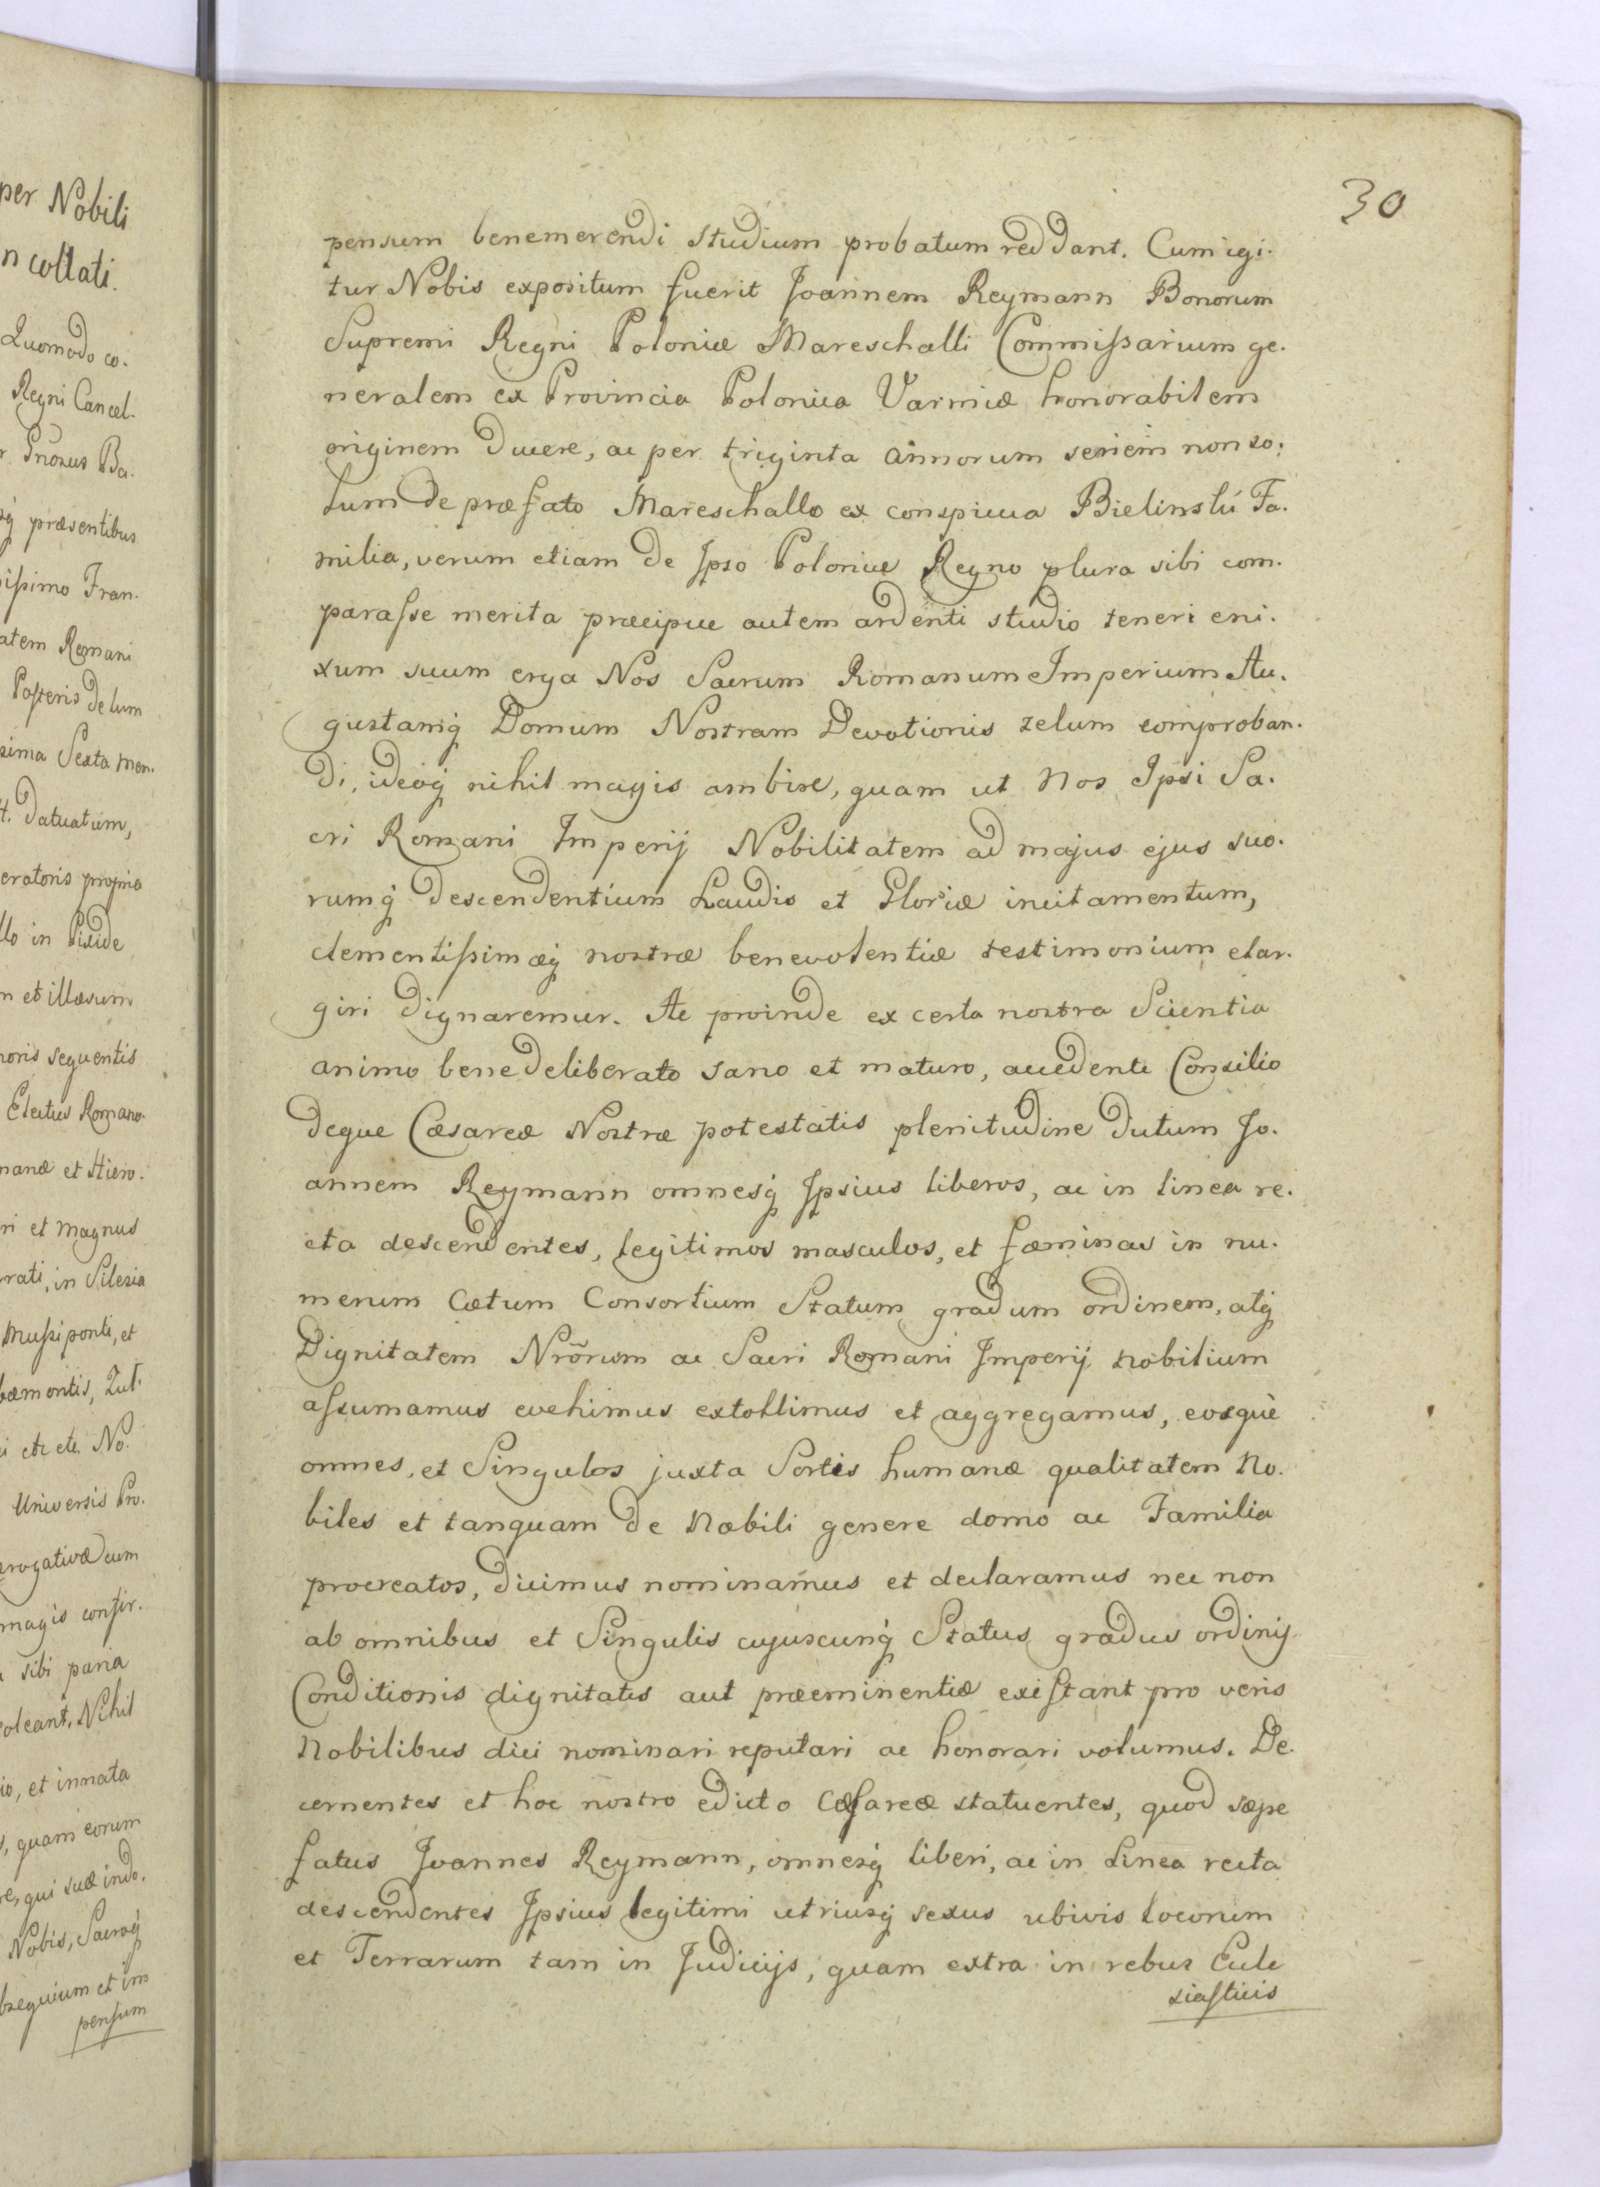 per Nobili
n collati.
Quomodo co.
Regni Cancel.
præsentibus
issimo Fran.
atem Romani
Posteris
sima Sexta Men.
Datuatum,
eratoris propria
llo in Pixide
n et illæsum
noris sequentis
Electus Romano.
manæ et Hiero.
ri et Magnus
rati, in Silesia
Mussiponti, et
i etc etc. No.
Universis Pro.
rogativæ cum
magis confir.
sibi paria
oleant, Nihil
io, et innata
s, quam eorum
re, qui suæ indo.
Nobis, Sacroq́
bsequium et im
pensum
30
pensum benemerendi Studium probatum reddant. Cum igi.
tur Nobis expositum fuerit Joannem Reymann Bonorum
Supremi Regni Poloniæ Mareschalli Commissarium ge.
neralem ex Provincia Polonica Varmiæ honorabilem
originem ducere, ac per triginta annorum seriem non so.
lum de præfato Mareschallo ex conspicua Bielinski Fa.
milia, verum etiam de Ipso Poloniæ Regno plura sibi com.
parasse merita præcipue autem ardenti studio teneri eni.
xum suum erga Nos Sacrum Romanum Imperium Au.
gustamq́ Domum Nostram Devotionis zelum comproban.
di, ideoq́ nihil magis ambire, quam ut Nos Ipsi Sa.
cri Romani Imperij Nobilitatem ad majus ejus suo.
rumq́ descendentium Laudis et Gloriæ incitamentum,
clementissimæq́ nostræ benevolentiæ testimonium elar.
giri dignaremur. Ac proinde ex certa nostra Scientia
animo bene deliberato sano et maturo, accedente Consilio
deque Cæsareæ Nostræ potestatis plenitudine dutum Jo.
annem Reymann omnesq́ Ipsius liberos, ac in linea re.
cta descendentes, legitimos masculos, et fæminas in nu.
merum Cætum Consortium Statum gradum ordinem, atq́
Dignitatem Nrõrum ac Sacri Romani Imperij nobilium
assumamus evehimus extollimus et aggregamus, eosquè
omnes, et Singulos juxta Sortis humanæ qualitatem No.
biles et tanquam de Nobili genere domo ac Familia
procreatos, dicimus nominamus et declaramus nec non
ab omnibus et Singulis cujuscunq́ Status gradus ordinij
Conditionis dignitatis aut præeminentiæ existant pro veris
Nobilibus dici nominari reputari ac honorari volumus. De.
cernentes et hoc nostro edicto Cæsareæ statuentes, quod sæpe
fatus Joannes Reymann, omnesq́ liberi, ac in Linea recta
descendentes Ipsius legitimi utriusq́ sexus ubivis locorum
et Terrarum tam in Judicijs, quam extra in rebus Eccle
siasticis